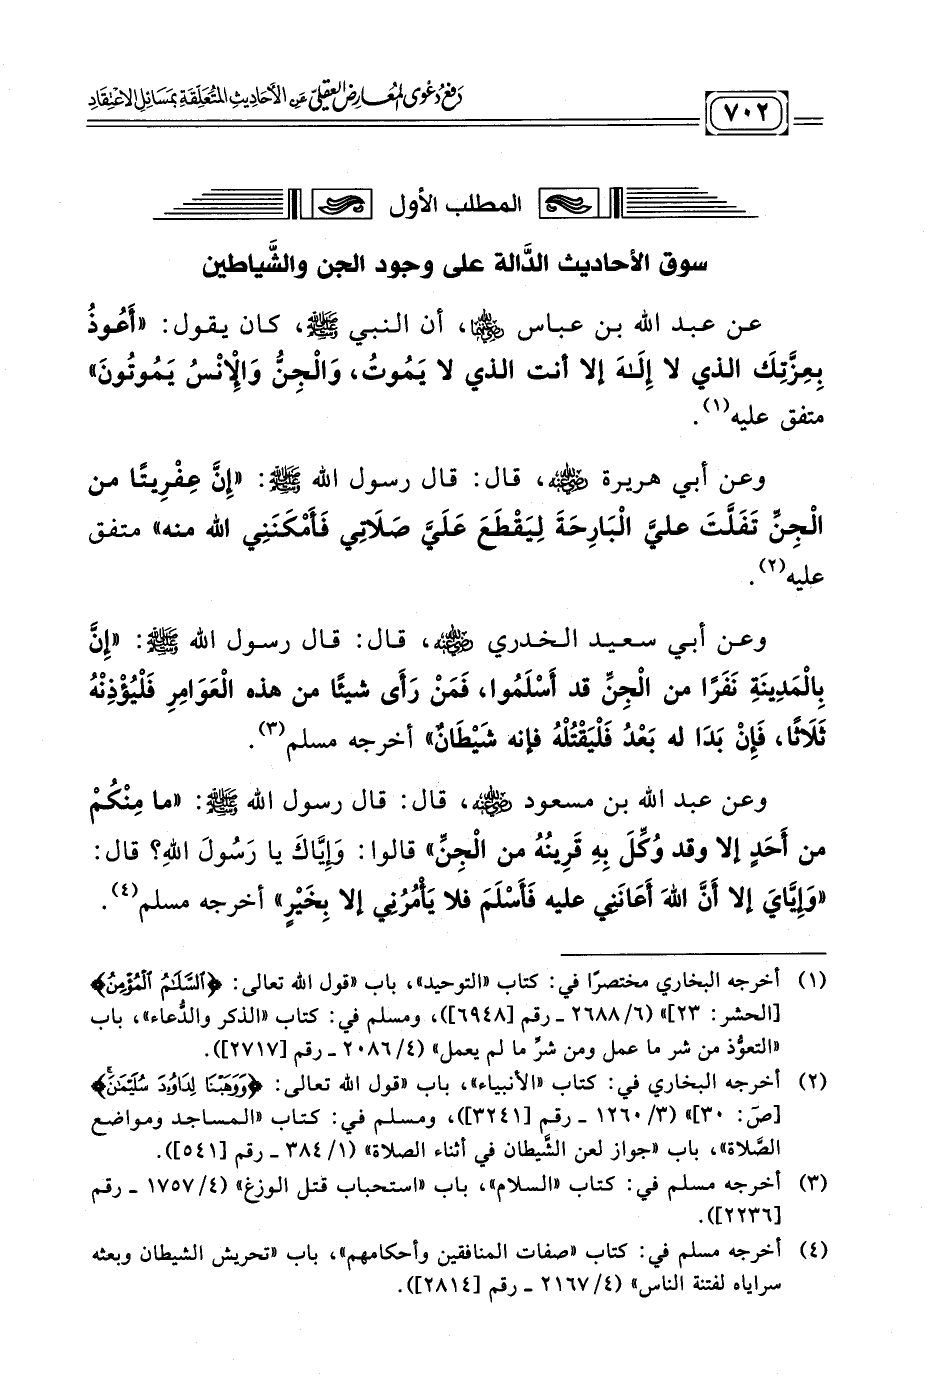 ٧٠٢
رفع دعوى المعارض العقلي عن الأحاديث المتعلقة بمسائل الاعتقاد
المطلب الأول
سوق الأحاديث الدَّالة على وجود الجن والشَّياطين
عن عبد الله بن عباس رضي الله عنهما، أن النبي ﷺ، كان يقول: «أَعُوذُ
بِعِزَّتِكَ الذي لا إِلَهَ إلا أنت الذي لا يَمُوتُ، وَالْجِنُّ وَالْإِنْسُ يَمُوتُونَ»
متفق عليه(١).
وعن أبي هريرة رضي الله عنه، قال: قال رسول الله ﷺ: «إِنَّ عِفْرِيتًا من
الْجِنِّ تَفَلَّتَ عليَّ الْبَارِحَةَ لِيَقْطَعَ عَلَيَّ صَلَاتِي فَأَمْكَنَنِي الله منه» متفق
عليه(٢).
وعن أبي سعيد الخدري رضي الله عنه، قال: قال رسول الله ﷺ: «إِنَّ
بِالْمَدِينَةِ نَفَرًا من الْجِنِّ قد أَسْلَمُوا، فَمَنْ رَأَى شيئًا من هذه الْعَوَامِرِ فَلْيُؤْذِنْهُ
ثَلَاثًا، فَإِنْ بَدَا له بَعْدُ فَلْيَقْتُلْهُ فإنه شَيْطَانٌ» أخرجه مسلم(٣).
وعن عبد الله بن مسعود رضي الله عنه، قال: قال رسول الله ﷺ: «ما مِنْكُمْ
من أَحَدٍ إلا وقد وُكِّلَ بِهِ قَرِينُهُ من الْجِنِّ» قالوا: وَإِيَّاكَ يا رَسُولَ اللهِ؟ قال:
«وَإِيَّايَ إلا أَنَّ اللهَ أَعَانَنِي عليه فَأَسْلَمَ فلا يَأْمُرُنِي إلا بِخَيْرٍ» أخرجه مسلم(٤).
(١) أخرجه البخاري مختصرًا في: كتاب «التوحيد»، باب «قول الله تعالى: ﴿السَّلَامُ الْمُؤْمِنُ﴾
[الحشر: ٢٣]» (٢٦٨٨/٦ ـ رقم [٦٩٤٨])، ومسلم في: كتاب «الذكر والدُّعاء»، باب
«التعوُّذ من شر ما عمل ومن شرِّ ما لم يعمل» (٢٠٨٦/٤ ـ رقم [٢٧١٧]).
(٢) أخرجه البخاري في: كتاب «الأنبياء»، باب «قول الله تعالى: ﴿وَوَهَبْنَا لِدَاوُدَ سُلَيْمَانَ﴾
[صَ: ٣٠]» (١٢٦٠/٣ ـ رقم [٣٢٤١])، ومسلم في: كتاب «المساجد ومواضع
الصَّلاة»، باب «جواز لعن الشَّيطان في أثناء الصلاة» (٣٨٤/١ ـ رقم [٥٤١]).
(٣) أخرجه مسلم في: كتاب «السلام»، باب «استحباب قتل الوزغ» (١٧٥٧/٤ ـ رقم
[٢٢٣٦]).
(٤) أخرجه مسلم في: كتاب «صفات المنافقين وأحكامهم»، باب «تحريش الشيطان وبعثه
سراياه لفتنة الناس» (٢١٦٧/٤ ـ رقم [٢٨١٤]).